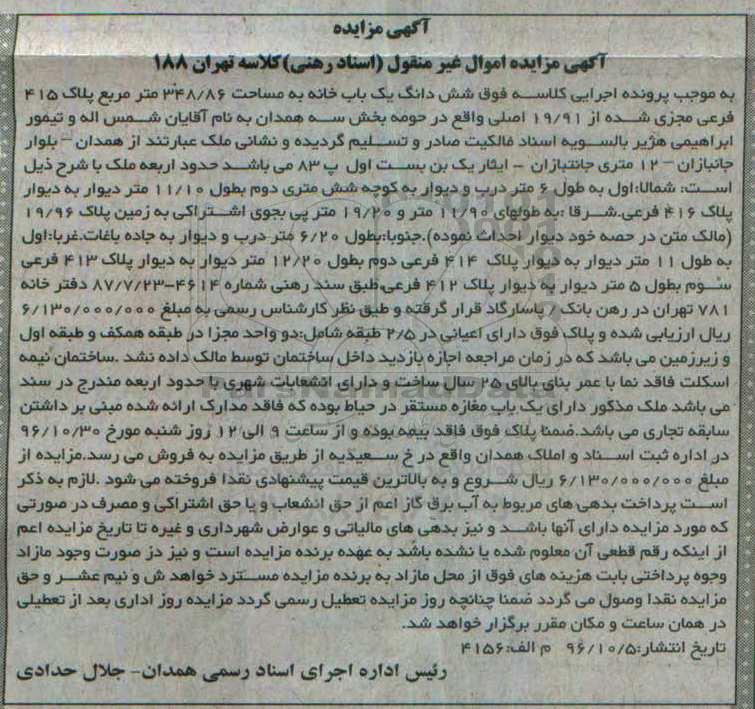 آگهی مزایده
آگهی مزایده اموال غیر منقول (اسناد رهنی)کلاسه تهران ۱۸۸
به موجب پرونده اجرایی کلاسه فوق شش دانگ یک باب خانه به مساحت ۳۴۸/۸۶ متر مربع پلاک ۴۱۵
فرعی مجزی شده از ۱۹/۹۱ اصلی واقع در حومه بخش سه همدان به نام آقایان شمس اله و تیمور
ابراهیمی هژیر بالسویه اسناد مالکیت صادر و تسلیم گردیده و نشانی ملک عبارتند از همدان – بلوار
جانبازان – ۱۲ متری جانتبازان – ایثار یک بن بست اول پ ۸۳ می باشد حدود اربعه ملک با شرح ذیل
است: شمالا:اول به طول ۶ متر درب و دیوار به کوچه شش متری دوم بطول ۱۱/۱۰ متر دیوار به دیوار
پلاک ۴۱۶ فرعی.شرقا :به طولهای ۱۱/۹۰ متر و ۱۹/۲۰ متر پی بجوی اشتراکی به زمین پلاک ۱۹/۹۶
(مالک متن در حصه خود دیوار احداث نموده).جنوبا:بطول ۶/۲۰ متر درب و دیوار به جاده باغات.غربا:اول
به طول ۱۱ متر دیوار به دیوار پلاک ۴۱۴ فرعی دوم بطول ۱۲/۲۰ متر دیوار به دیوار پلاک ۴۱۳ فرعی
سوم بطول ۵ متر دیوار به دیوار پلاک ۴۱۲ فرعی.طبق سند رهنی شماره ۴۶۱۴–۸۷/۷/۲۳ دفتر خانه
۷۸۱ تهران در رهن بانک پاسارگاد قرار گرفته و طبق نظر کارشناس رسمی به مبلغ ۶/۱۳۰/۰۰۰/۰۰۰
ریال ارزیابی شده و پلاک فوق دارای اعیانی در ۲/۵ طبقه شامل:دو واحد مجزا در طبقه همکف و طبقه اول
و زیرزمین می باشد که در زمان مراجعه اجازه بازدید داخل ساختمان توسط مالک داده نشد .ساختمان نیمه
اسکلت فاقد نما با عمر بنای بالای ۲۵ سال ساخت و دارای انشعابات شهری با حدود اربعه مندرج در سند
می باشد ملک مذکور دارای یک باب مغازه مستقر در حیاط بوده که فاقد مدارک ارائه شده مبنی بر داشتن
سابقه تجاری می باشد.ضمنا پلاک فوق فاقد بیمه بوده و از ساعت ۹ الی ۱۲ روز شنبه مورخ ۹۶/۱۰/۳۰
در اداره ثبت اسناد و املاک همدان واقع در خ سعیدیه از طریق مزایده به فروش می رسد.مزایده از
مبلغ ۶/۱۳۰/۰۰۰/۰۰۰ ریال شروع و به بالاترین قیمت پیشنهادی نقدا فروخته می شود .لازم به ذکر
است پرداخت بدهی های مربوط به آب برق گاز اعم از حق انشعاب و یا حق اشتراکی و مصرف در صورتی
که مورد مزایده دارای آنها باشد و نیز بدهی های مالیاتی و عوارض شهرداری و غیره تا تاریخ مزایده اعم
از اینکه رقم قطعی آن معلوم شده یا نشده باشد به عهده برنده مزایده است و نیز در صورت وجود مازاد
وجوه پرداختی بابت هزینه های فوق از محل مازاد به برنده مزایده مسترد خواهد ش و نیم عشر و حق
مزایده نقدا وصول می گردد ضمنا چنانچه روز مزایده تعطیل رسمی گردد مزایده روز اداری بعد از تعطیلی
در همان ساعت و مکان مقرر برگزار خواهد شد.
تاریخ انتشار:۹۶/۱۰/۵ م الف:۴۱۵۶
رئیس اداره اجرای اسناد رسمی همدان– جلال حدادی